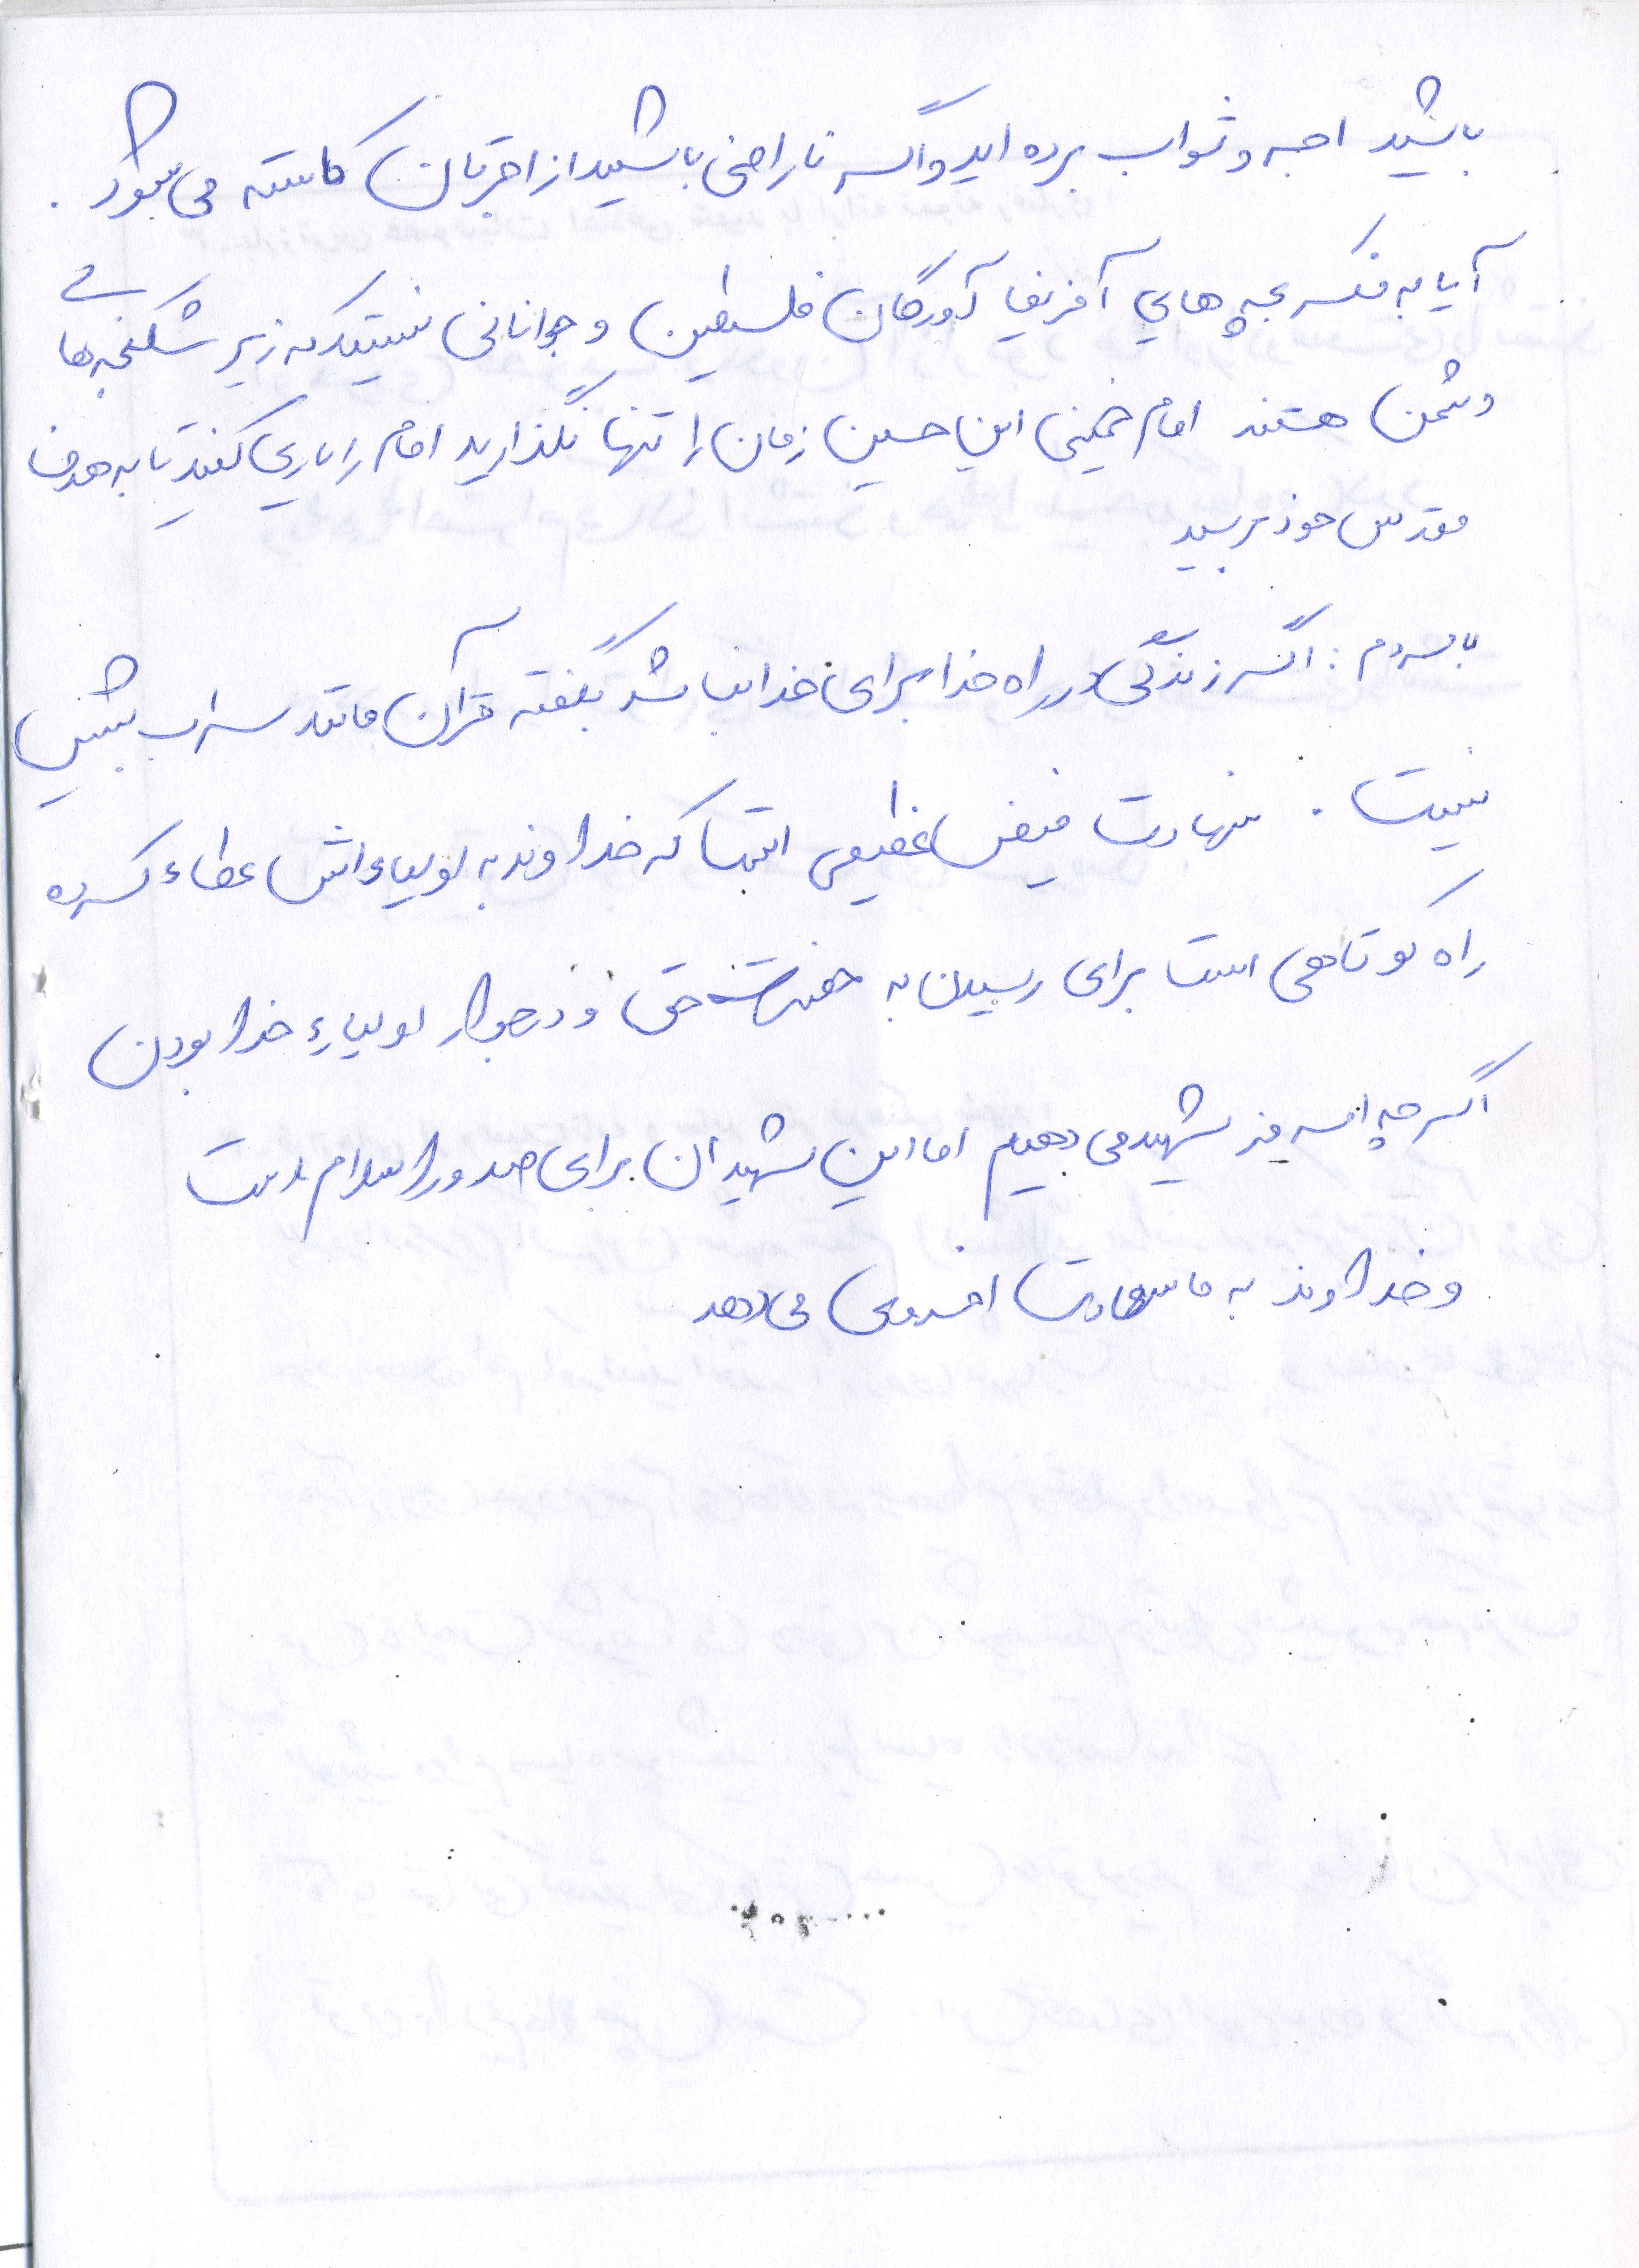 باشید اجر و ثواب برده اید و اگر ناراضی باشید از اجرتان کاسته می شود .
آیا به فکر بچه های آفریقا آوردگان فلسطین و جوانانی نیستید که زیر شکنجه های
دشمن هستند امام خمینی این حسین زمان را تنها نگذارید امام را یاری کنید تا به هدف
مقدس خود برسید
با مردم : اگر زندگی در راه خدا برای خدا نباشد بگفته قرآن مانند سراب بیش
نیست . شهادت فیض عظیمی است که خداوند به اولیاء اش عطاء کرده
راه کوتاهی است برای رسیدن به حضرت حق و در جوار اولیاء خدا بودن
اگر چه امروز شهید می دهیم اما این شهیدان برای صدور اسلام است
و خداوند به ما سعادت اخروی می دهد